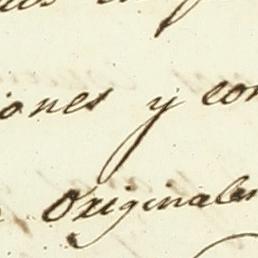 iones y con
Originales